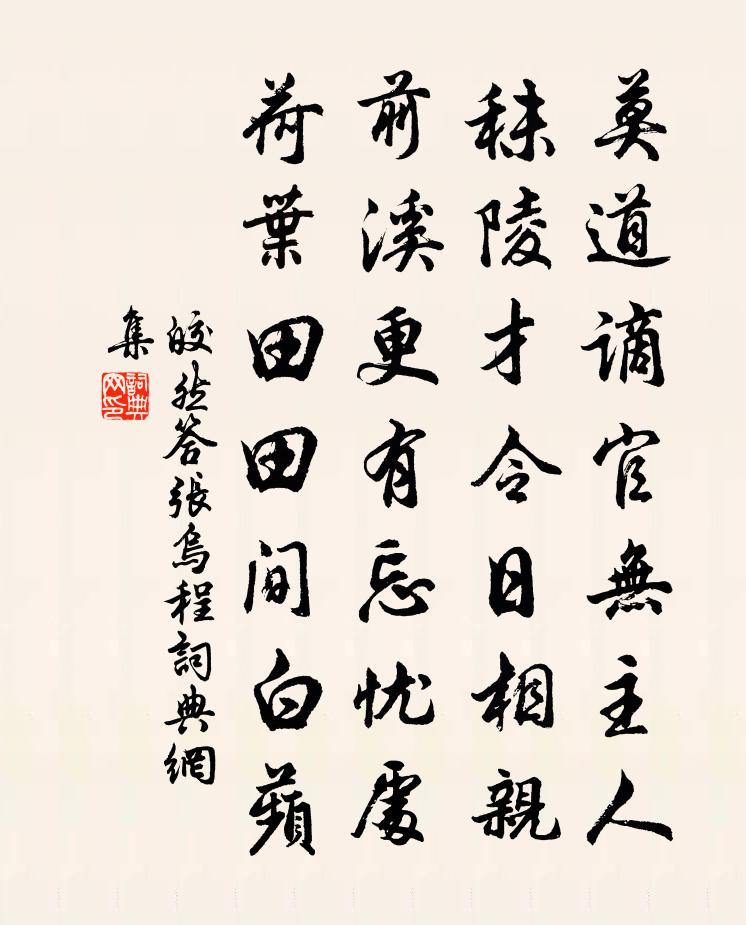 莫道謫官無主人
秣陵才令日相親
前溪更有忘忧處
荷葉田田間白蘋
皎然答張烏程詞典網
集
詞典
网印